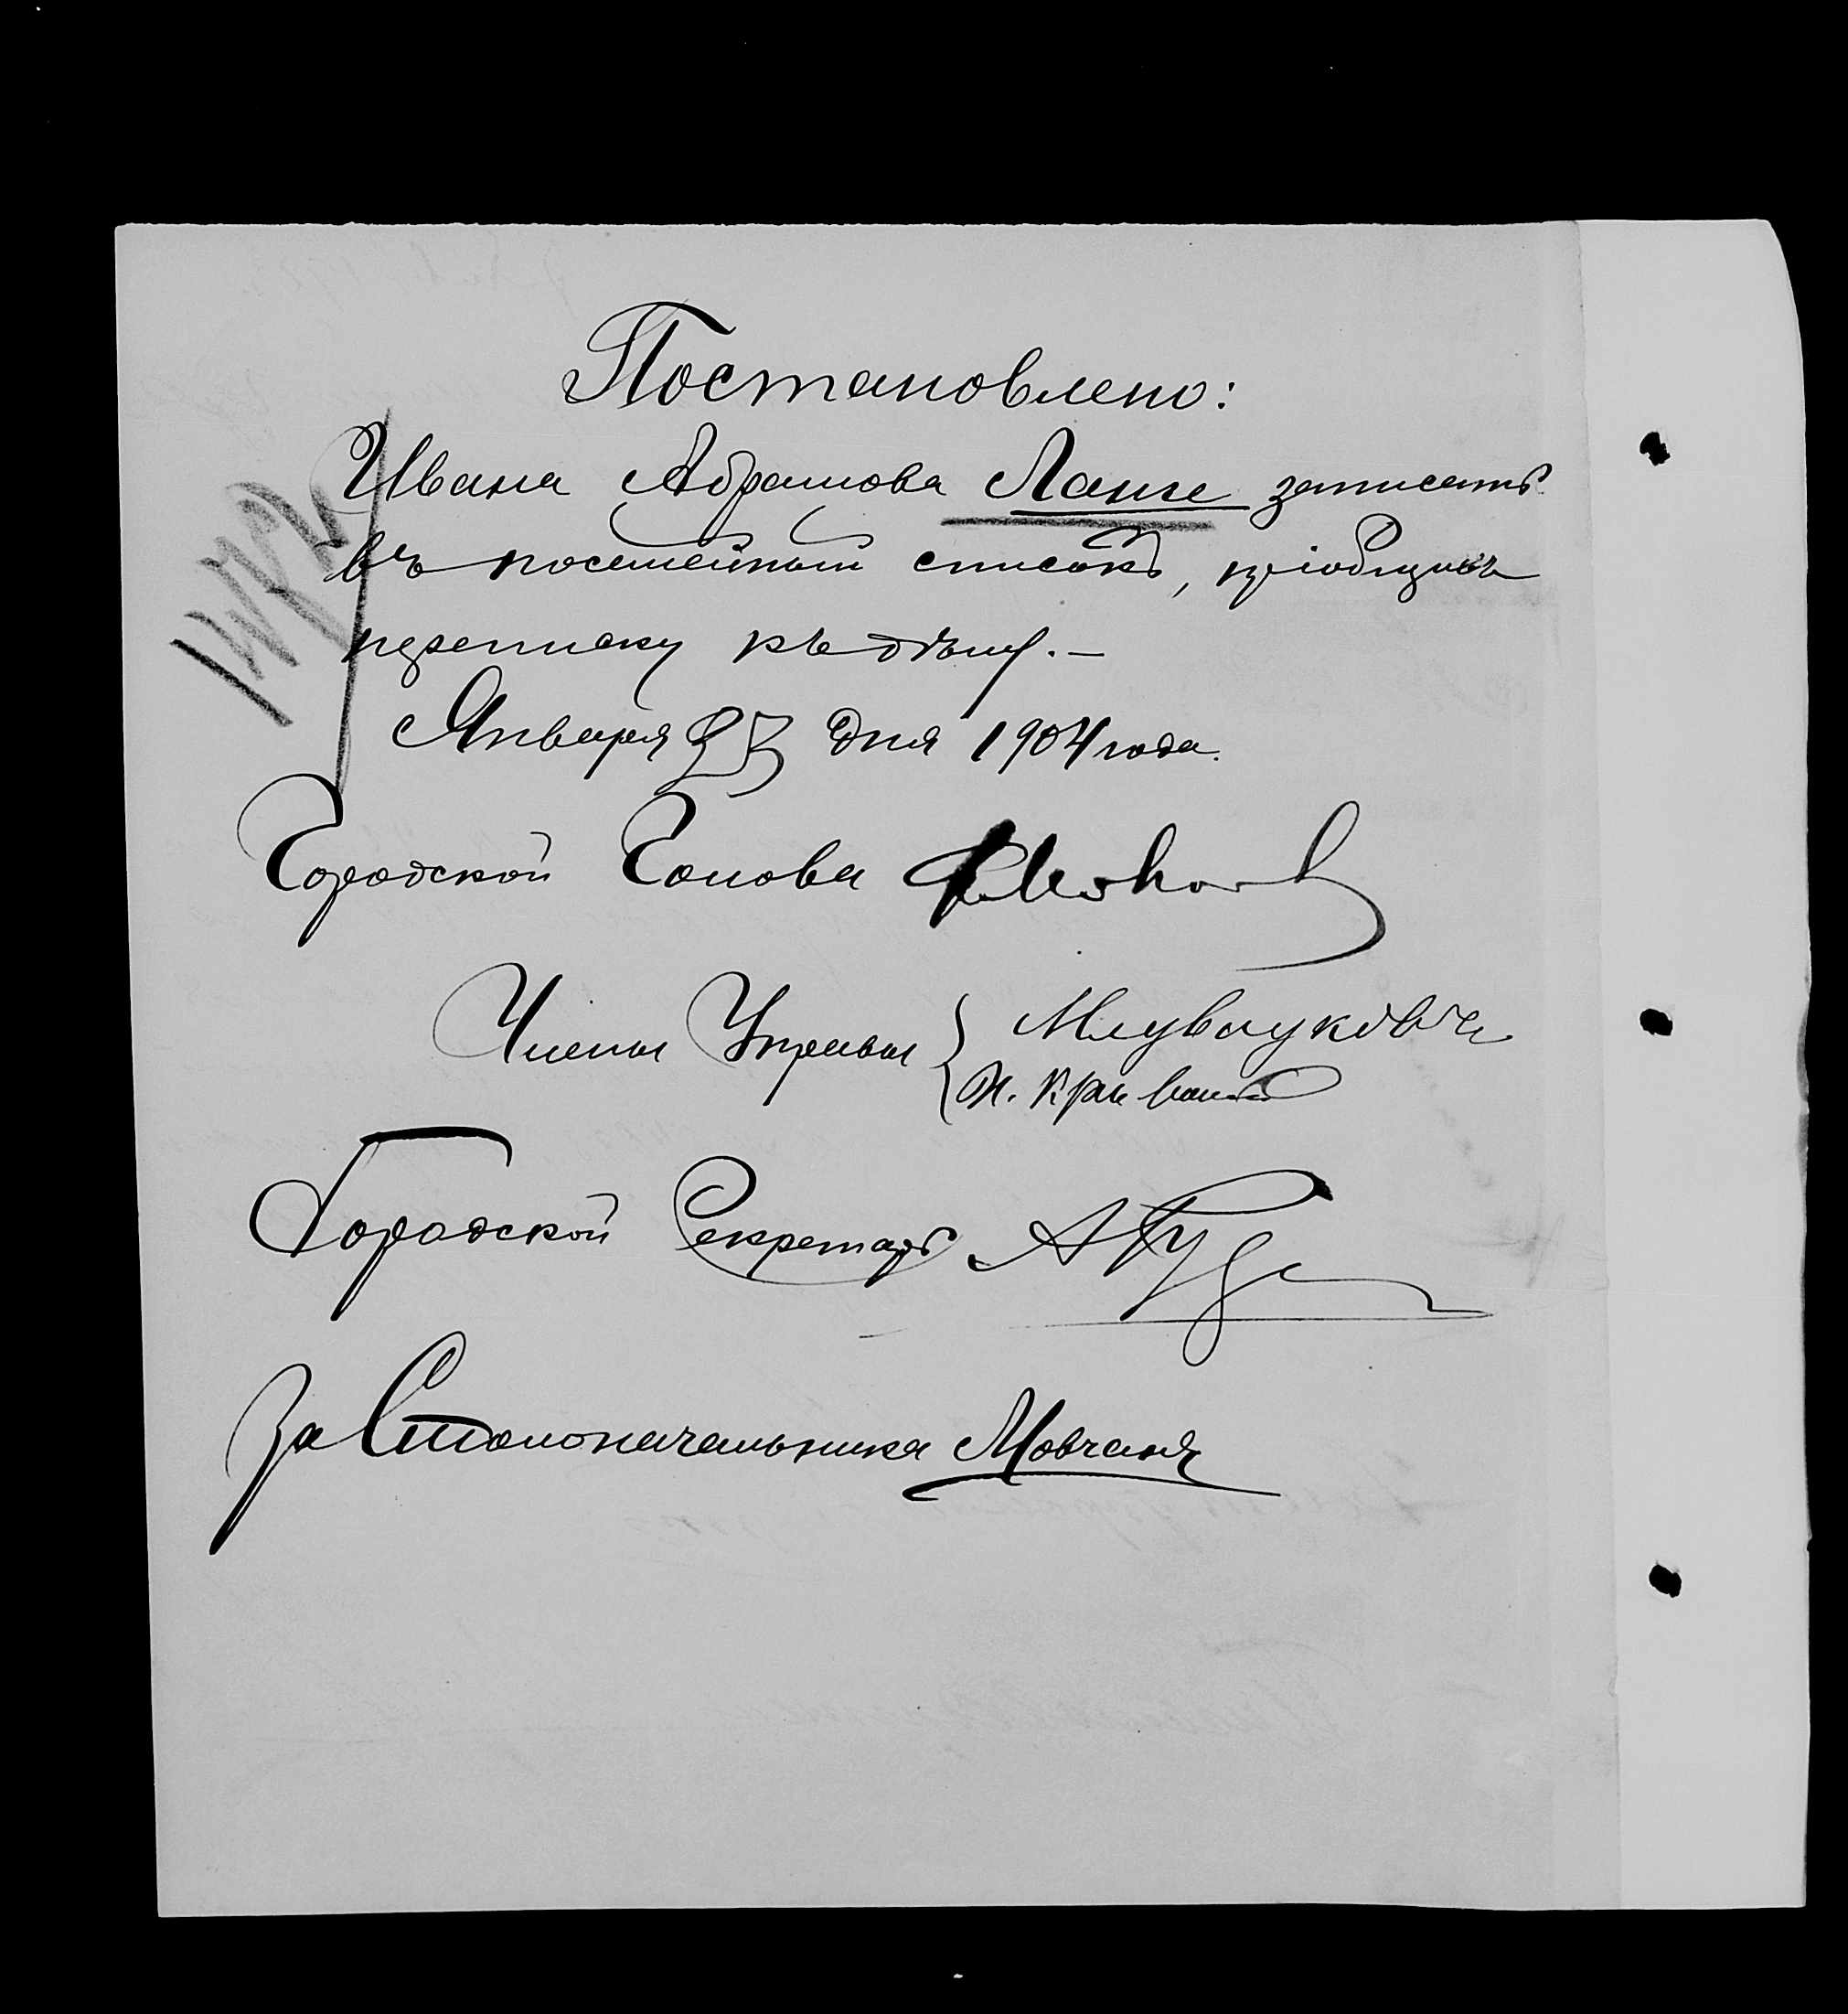 Постановлено:
Ивана Абрамова Ланге записать
въ посемейный списокъ, пріобщивъ
переписку къ дѣлу.—
Января дня 1904 года.
Городской Голова
Члены Управы
Н.
Городской Секретарь А
За Столоначальника Мовчанъ